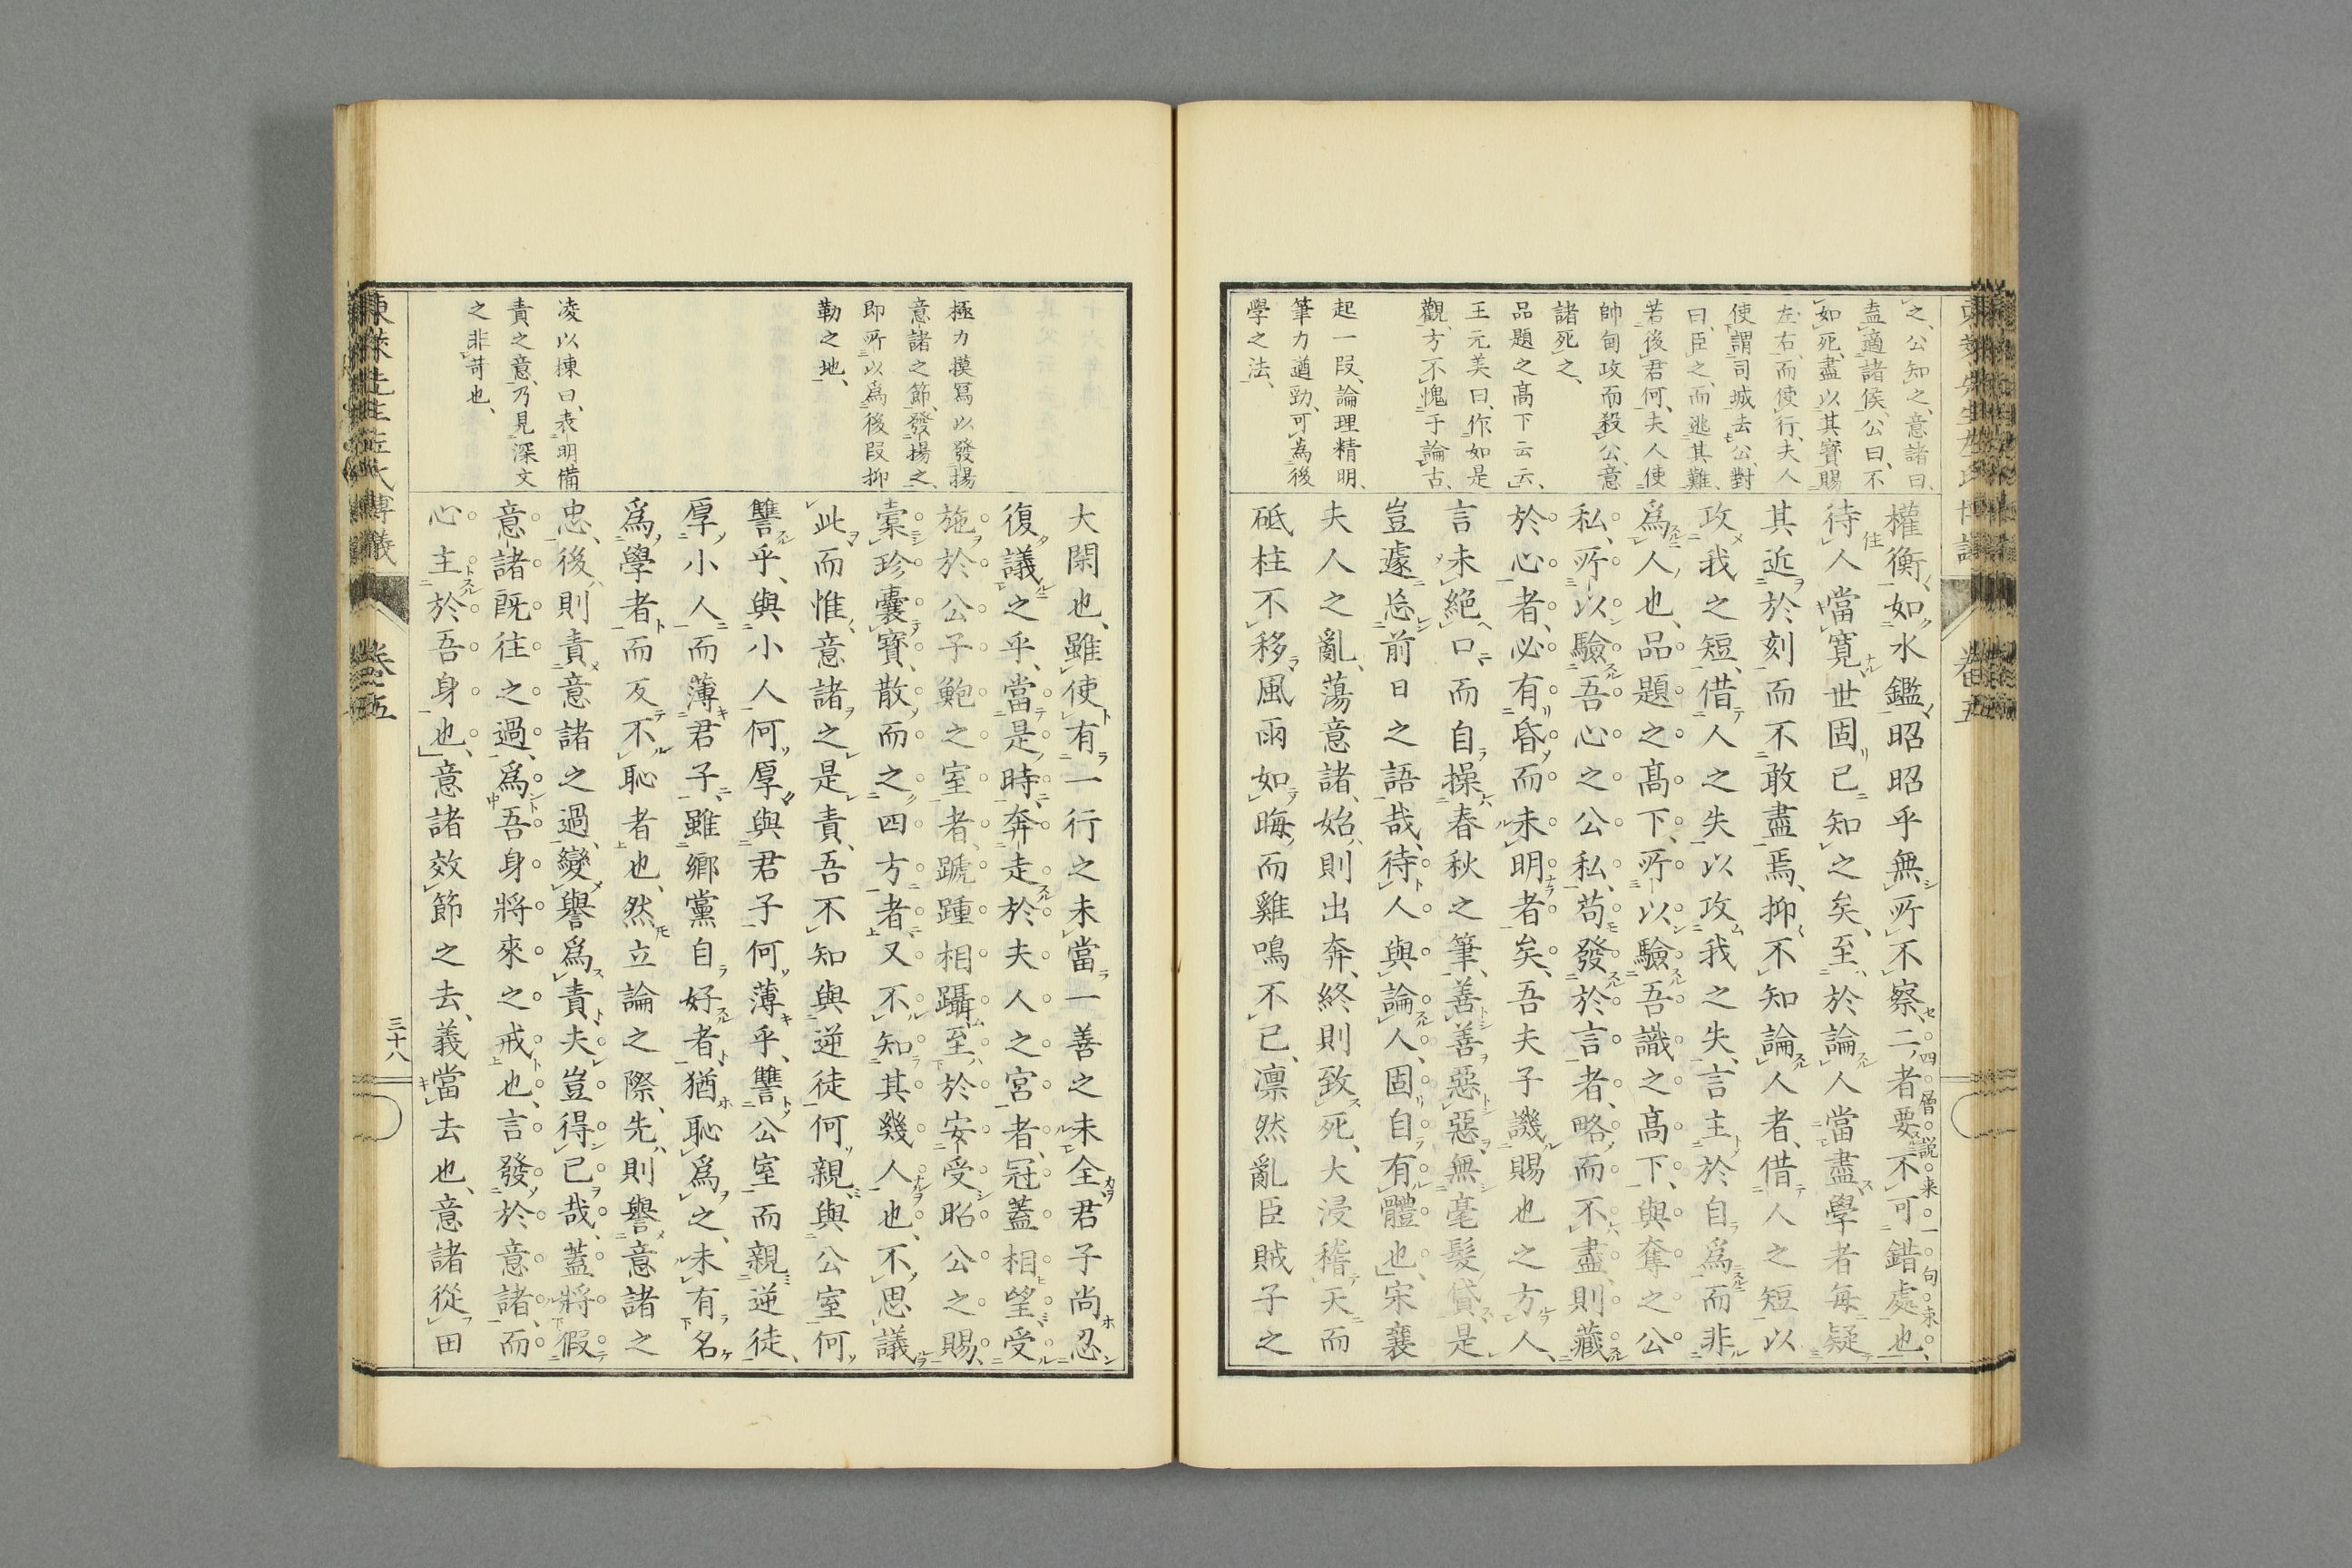 之、公知之、意諸曰、
盍適諸侯、公曰、不
如死、盡以其寶賜
左右、而使行、夫人
使謂司城去公、對
曰、臣之、而逃其難、
若後君何、夫人使
帥甸攻而殺公、意
諸死之、
品題之高下云云、
王元美曰、作如是
觀、方不愧乎論古、
起一段、論理精明、
筆力遒勁、可為後
學之法、
權衡、如水鑑、昭昭乎無所不察、二者要不可錯處也、
四層說來一句束
待人當寬、世固已知之矣、至於論人當盡、學者每疑
往
其近於刻而不敢盡焉、抑不知論人者、借人之短以
攻我之短、借人之失以攻我之失、言主於自爲而非
爲人也、品題之高下、所以驗吾識之高下、與奪之公
私、所以驗吾心之公私、苟發於言者、略而不盡、則藏
於心者、必有昏而未明者矣、吾夫子譏賜也之方人、
言未絕口而自操春秋之筆、善善惡惡、無毫髮貸、是
豈遽忘前日之語哉、待人與論人、固自有體也、宋襄
夫人之亂、蕩意諸、始則出奔、終則致死、大浸稽天而
砥柱不移、風雨如晦、而雞鳴不已、凛然亂臣賊子之
東萊先生左氏博議
卷五
極力摸寫以發揚
意諸之節、發揚之、
即所以爲後段抑
勒之地、
凌以揀曰、表明備
責之意、乃見深文
之非苛也、
大閑也、雖使有一行之未當、一善之未全、君子尚忍
復議之乎、當是時、奔走於夫人之宮者、冠蓋相望、受
施於公子鮑之室者、蹏踵相躡、至於安受昭公之賜、
橐珍囊寶、散而之四方者、又不知其幾人也、不思議
此而惟意諸之是責、吾不知與逆徒何親、與公室何
讐乎、與小人何厚、與君子何薄乎、讐公室而親逆徒、
厚小人而薄君子、雖鄉黨自好者、猶恥爲之、未有名
爲學者而反不恥者也、然立論之際、先則譽意諸之
忠、後則責意諸之過、變譽爲責、夫豈得已哉、蓋將假
意諸既往之過、爲吾身將來之戒也、言發於意諸、而
心主於吾身也、意諸效節之去、義當去也、意諸從田
東萊先生左氏博議
卷五
三十八